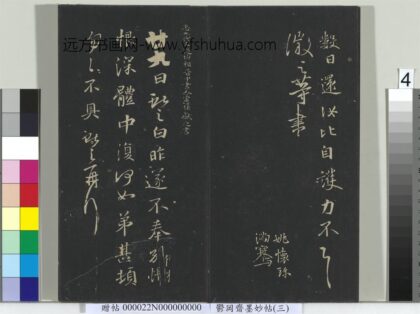 远方书画网-www.yfshuhua.com
數日還必比自護力不
徽之等書
姚懷珍
滿騫
廿九日獻之白昨遂不奉別悵
恨深體中復何如弟甚頓
匆匆不具獻之再拜
4
贈帖 000022N000000000 鬱岡齋墨妙帖(三)